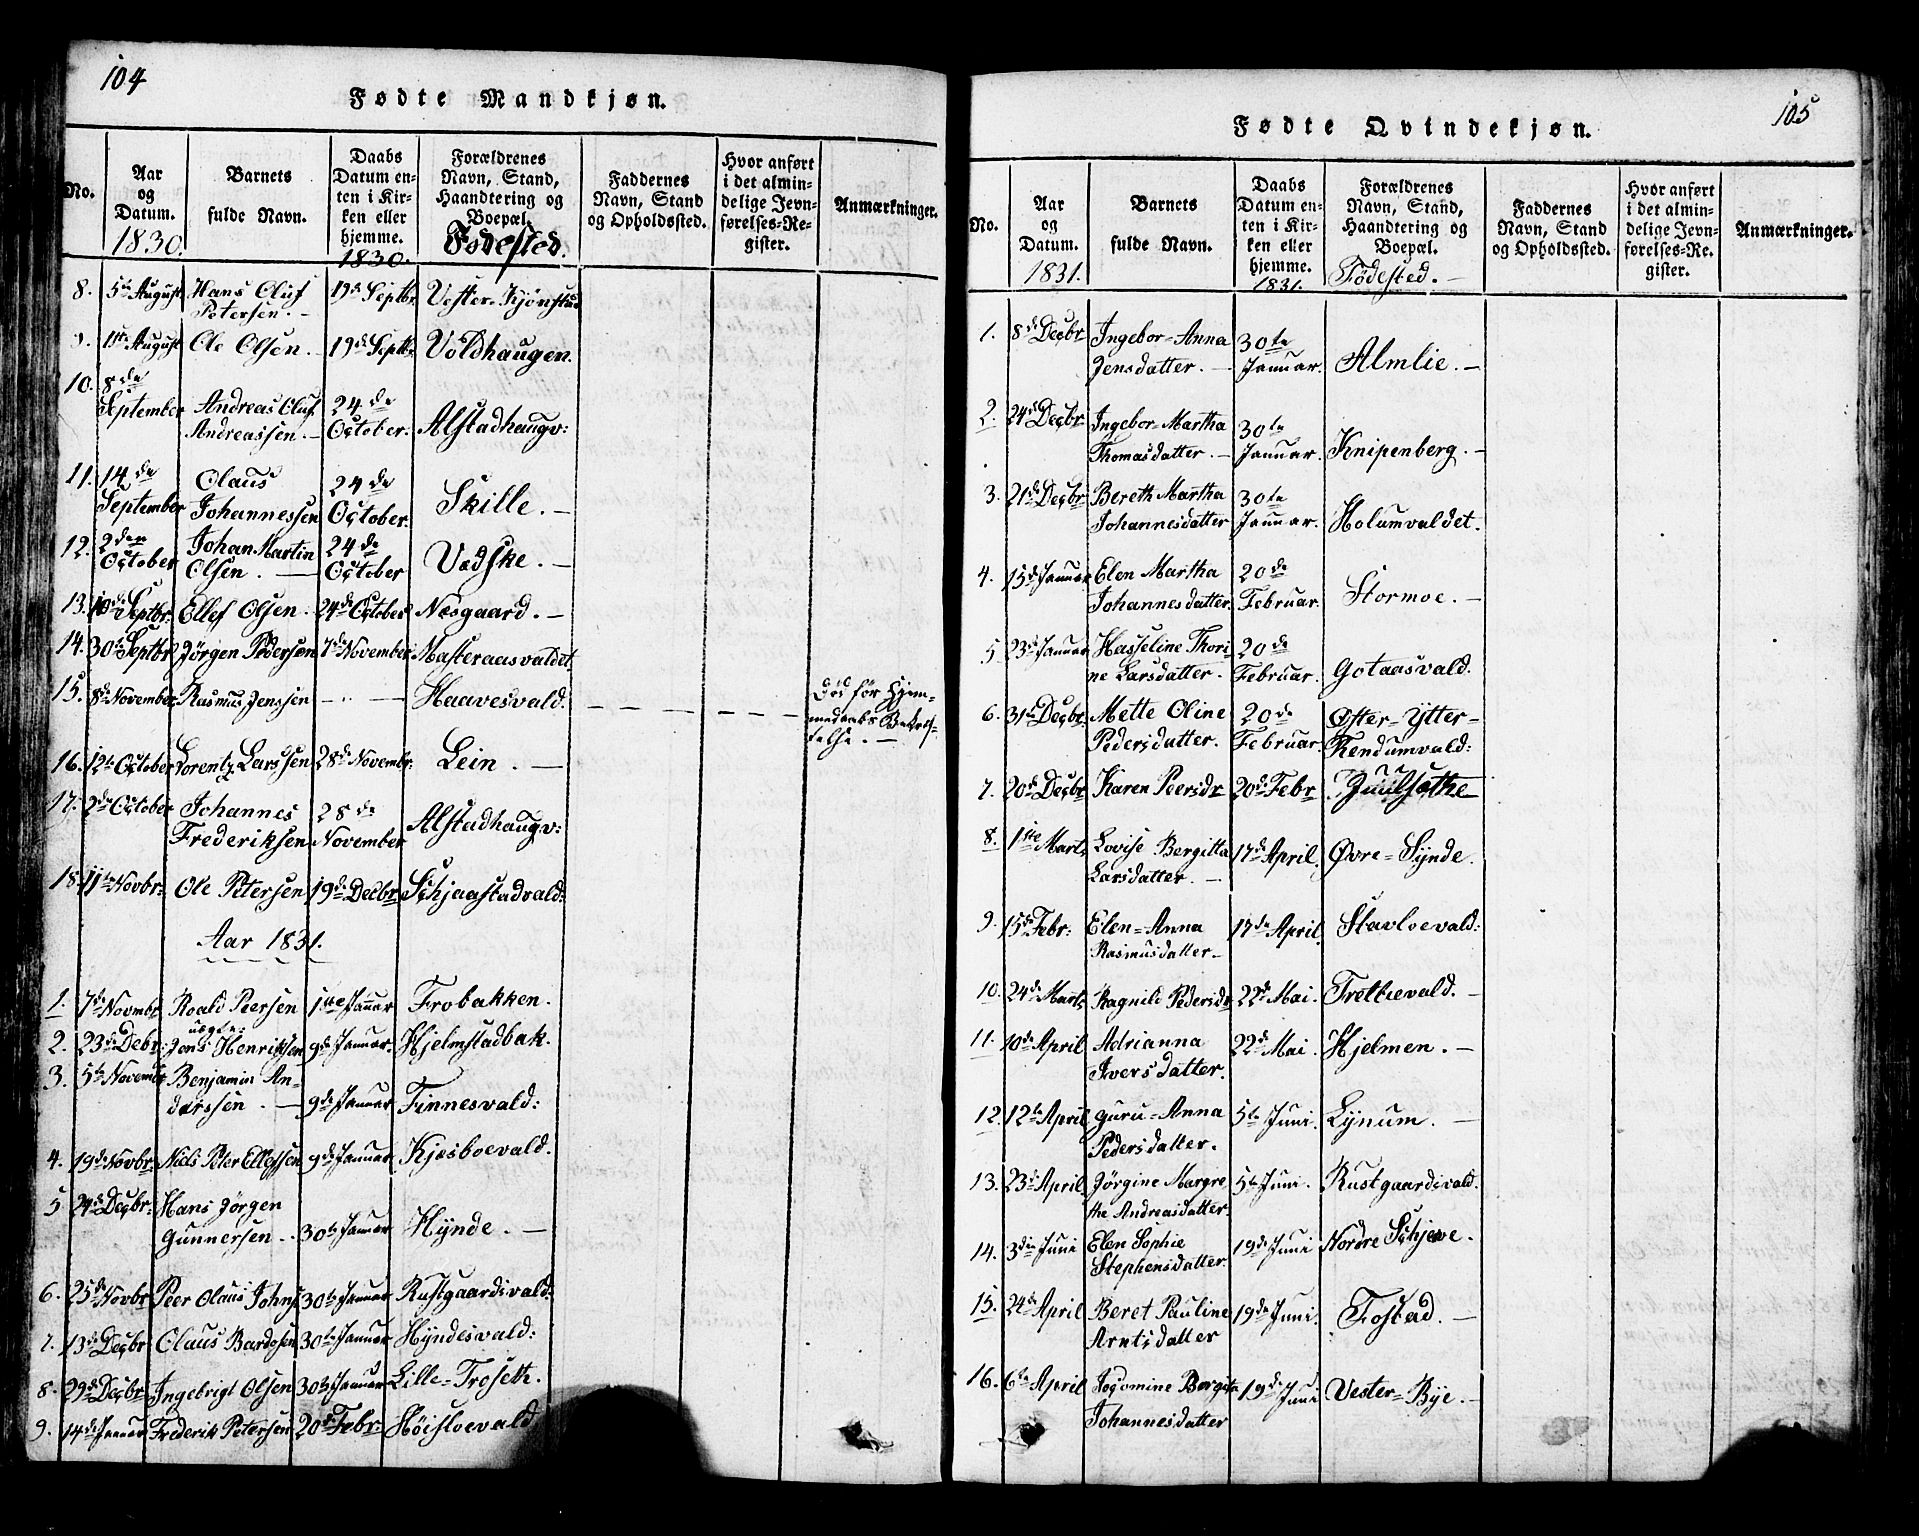 104
Fødte Mandkjøn.
No.
Aar og Datum. 1830.
Barnets fulde Navn.
Daabs Datum enten i Kirken eller hjemme. 1830.
Forældrenes Navn, Stand, Haandtering og Boepæl. Fødested.
Faddernes Navn, Stand og Opholdssted.
Hvor anført i det almindelige Jevnførelses-Register.
Anmærkninger.
8. 5te August Hans Oluf Petersen. 19de Septbr. Vester-Kjønstad
9. August Ole Olsen. 19de Septbr. Voldhaugen.
10. 8de September Andreas Oluf Andreassen. 24de October. Alstadhaugv:
11. 14de September Olaus Johannessen 24de October. Skille.
12. 2den October Johan Martin Olsen. 24de October Vædske.
13. Septbr. Ellef Olsen. 24de October Næsgaard.
14. 30te Septbr Jørgen Pedersen 7de November Masteraasvaldet
15. 8de November Rasmus Jenssen Haavesvald. Død før Hjemmedaabs Bekræftelse.
16. 12te October Lorentz Larssen 28de Novembr: Lein.
17. 2de October Johannes Frederiksen 28de November Alstadhaugv:
18. 11te Novbr: Ole Petersen 19de Decbr Schjaastadvald:
Aar 1831.
1. 7de Novmbr Roald Peersen 1ste Januar Frobakken.
2. 23de Debr: uægte: Jens Henriksen 9de Januar. Hjelmstadbak.
3. 5te November Benjamin Anderssen. 9de Januar Finnesvald:
4. 19de Novbr: Niels Peter Ellefssen 9de Januar Kjæsboevald.
5 24de Decbr: Hans Jørgen Gunnersen. 30te Januar Hynde.
6. 25de Novbr Peer Olaus Johns 30te Januar Rustgaardsvald:
7. 13de Decbr Olaus Bardosen 30te Januar Hyndesvald:
8. 29de Decbr Ingebrigt Olsen 30te Januar Lille-Troseth.
9. 14de Januar Frederik Petersen 20de Febr: Høisloevald
105
Fødte Qvindekjøn.
No.
Aar og Datum. 1831.
Barnets fulde Navn.
Daabs Datum enten i Kirken eller hjemme. 1831.
Forældrenes Navn, Stand, Haandtering og Boepæl. Fødested.
Faddernes Navn, Stand og Opholdssted.
Hvor anført i det almindelige Jevnførelses-Register.
Anmærkninger.
1. 8de Decbr Ingebor-Anna Jensdatter. 30te Januar. Almlie.
2. 24de Decbr Ingebor-Martha Thomasdatter. 30te Januar. Knipenberg.
3. 21de Decbr Bereth Martha Johannesdatter 30te Januar. Holumvaldet.
4. 15de Januar Elen Martha Johannesdatter. 20de Februar. Stormoe.
5 23de Januar Hasseline Thorine Larsdatter. 20de Februar. Gotaasvald.
6. 31te Decbr Mette Oline Pedersdatter. 20de Februar. Øster-Ytter-Rendumvald:
7. 20de Decbr Karen Peersdr 20de Febr Juulsæthe
8. 1ste Marts Lovise Bergitta Larsdatter. 17de April. Øvre-Synde.
9. 15de Febr: Elen-Anna Rasmusdatter 17de April. Stavloevald:
10. 24de Marts Ragnild Pedersdr 22de Mai. Trettievald.
11. 10de April Adrianna Iversdatter. 22de Mai. Hjelmen.
12. 12te April Guru-Anna Pedersdatter. 5te Juni. Lynum.
13. 23de April. Jørgine Margrethe Andreasdatter. 5te Juni. Rustgaardsvald.
14. 3die Juni Elen Sophie Stephensdatter. 19de Juni Nordre Schjeve.
15. 24de April Beret Pauline Arntsdatter 19de Juni. Fostad.
16. 6te April Johannesdatter 19de Juni Vester-Bye.